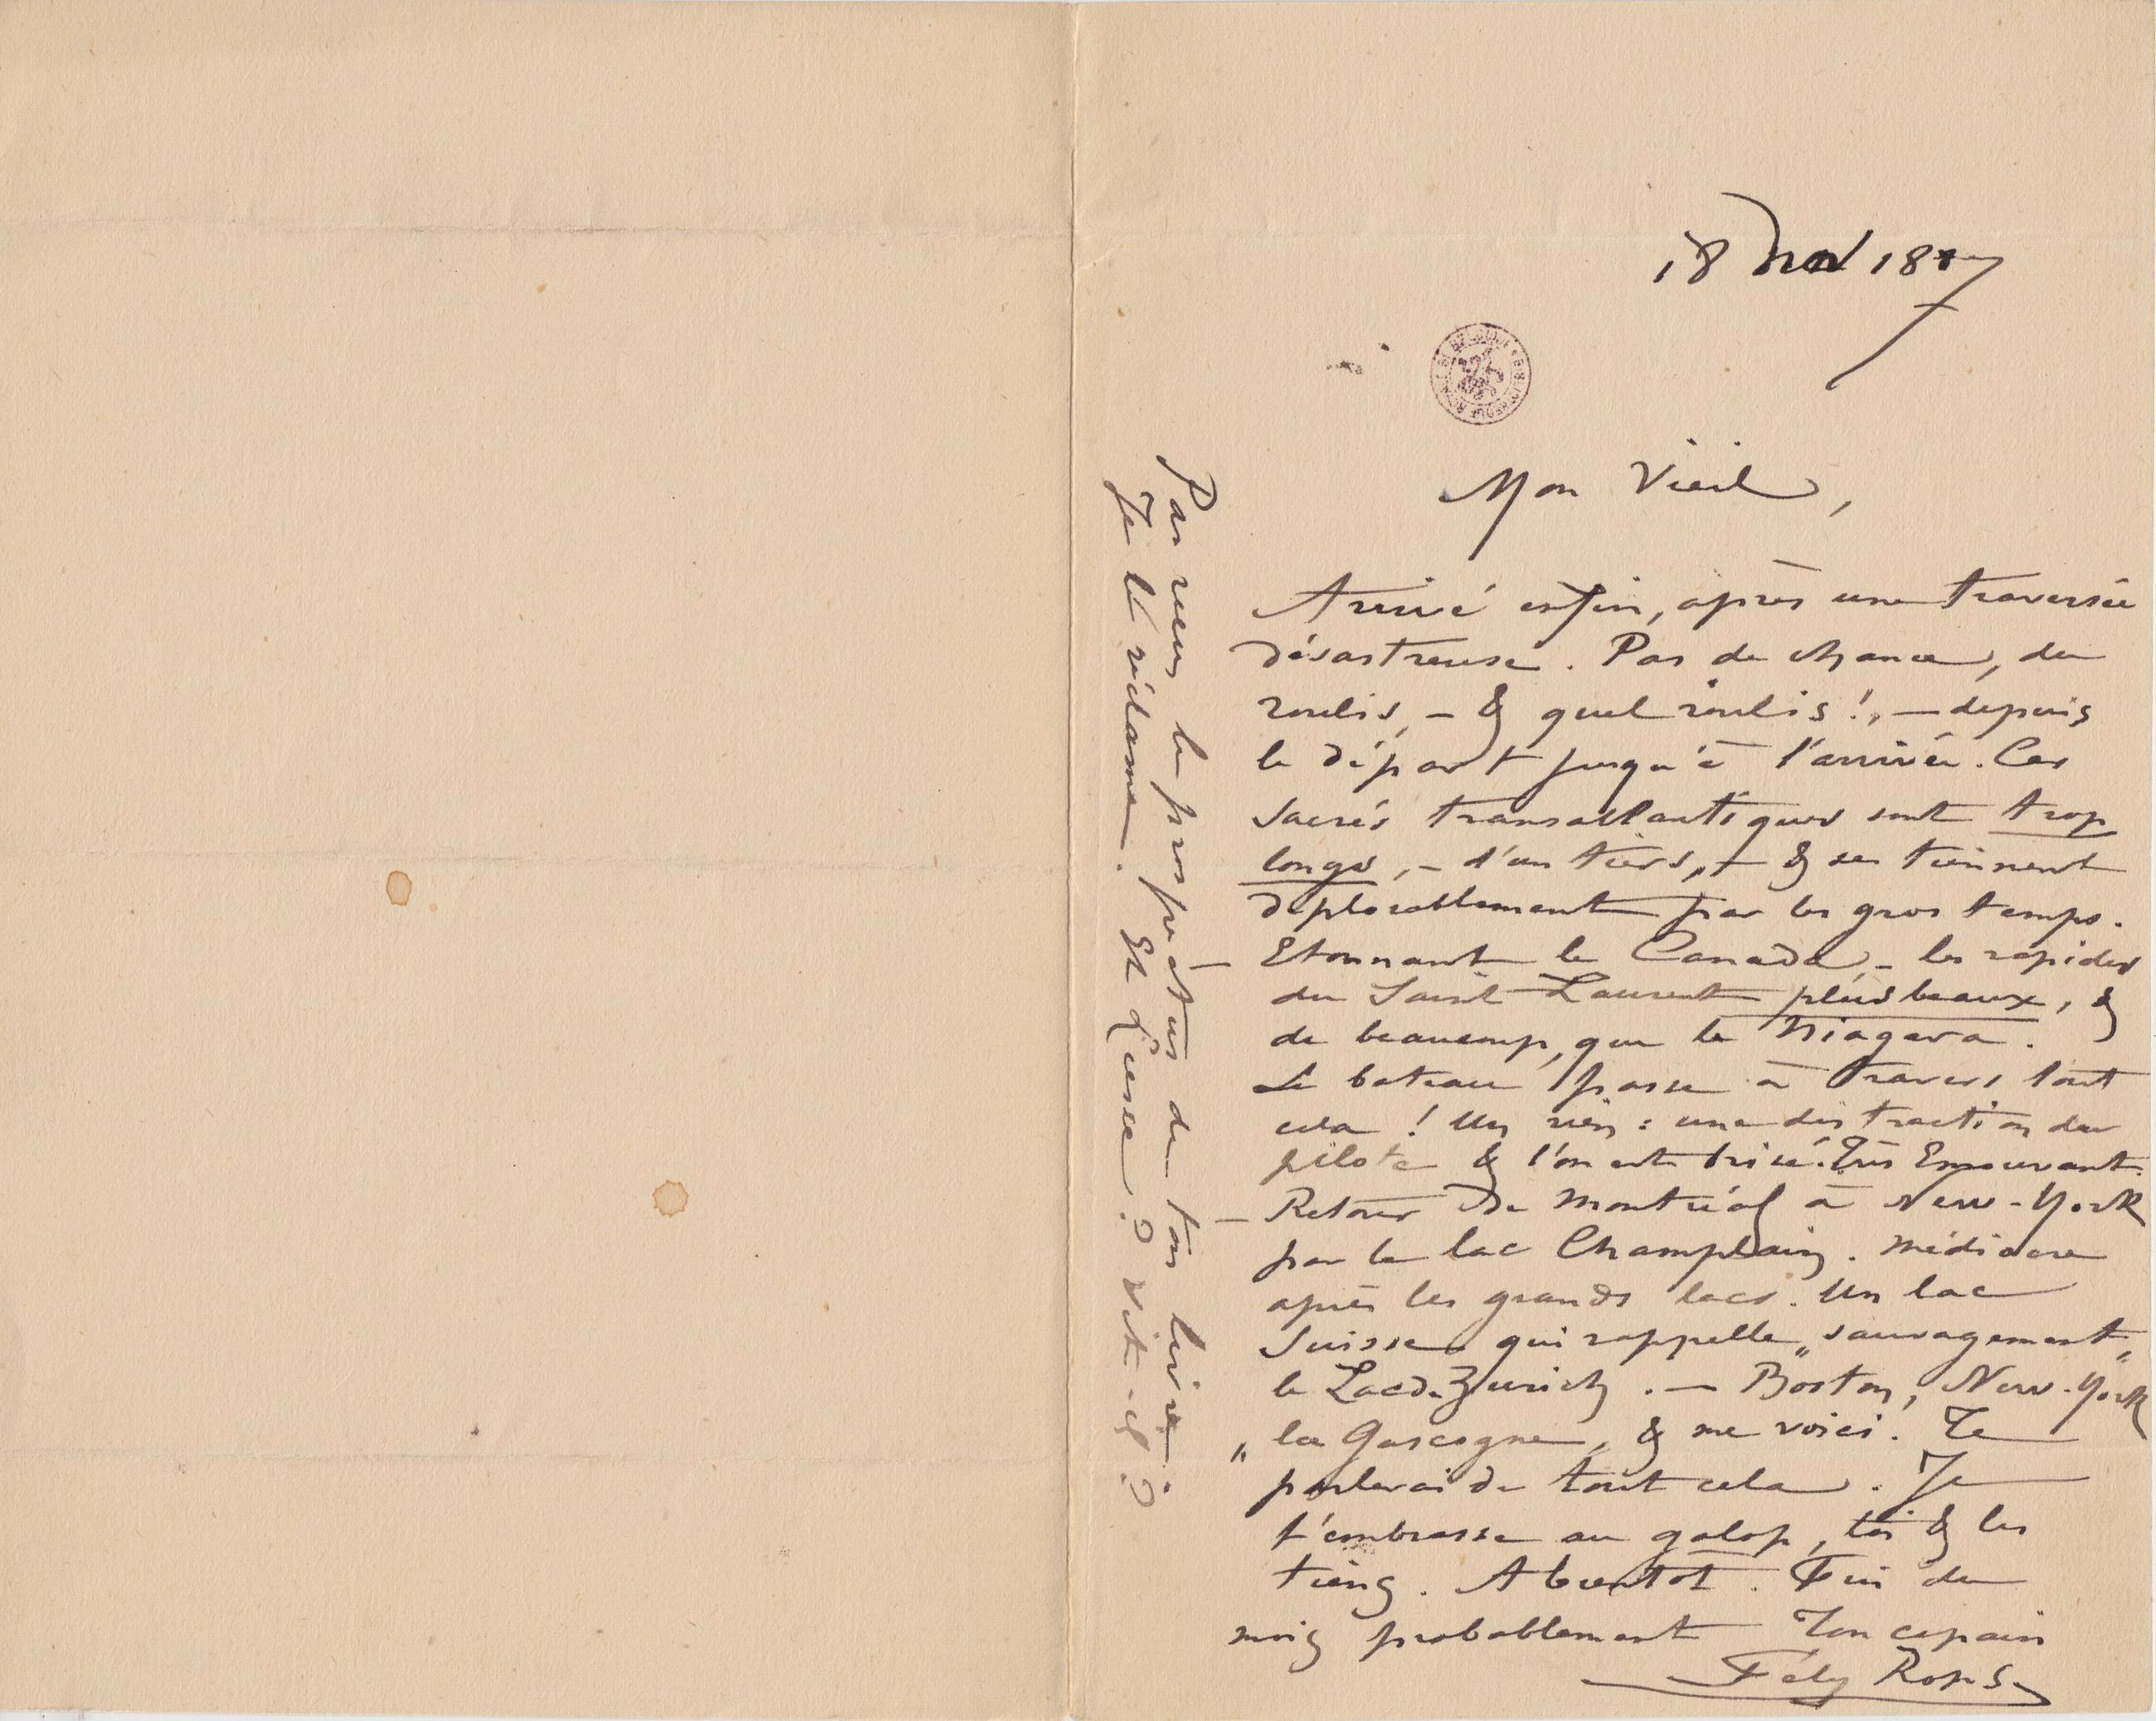 18 Nov 1887
Mon Vieil,
Arrivé enfin, après une traversée
désastreuse. Pas de chance, du
roulis, – & quel roulis !, – depuis
le départ jusqu'à l'arrivée. Ces
sacrés transatlantiques sont trop
longs, – d'un tiers, – & se tiennent
déplorablement par les gros temps.
– Etonnant le Canada, – les rapides
du Saint Laurent plus beaux, &
de beaucoup, que le Niagara.
Le bateau passe à travers tout
cela ! Un rien : une distraction du
pilote & l'on est brisé. Très Emouvant.
– Retour de Montréal à New-York
par le lac Champlain. Médiocre
après les grands lacs. Un lac
Suisse qui rappelle „sauvagement„
le Lac de Zurich. – Boston, New-York
„la Gascogne, & me voici. Te
parlerai de tout cela. Je
t'embrasse au galop, toi & les
tiens. A bientôt. Fin du
mois probablement Ton copain
Fély Rops
Pas reçu le prospectus de ton livre.
Je le réclame. Et Liesse ? Vit-il ?